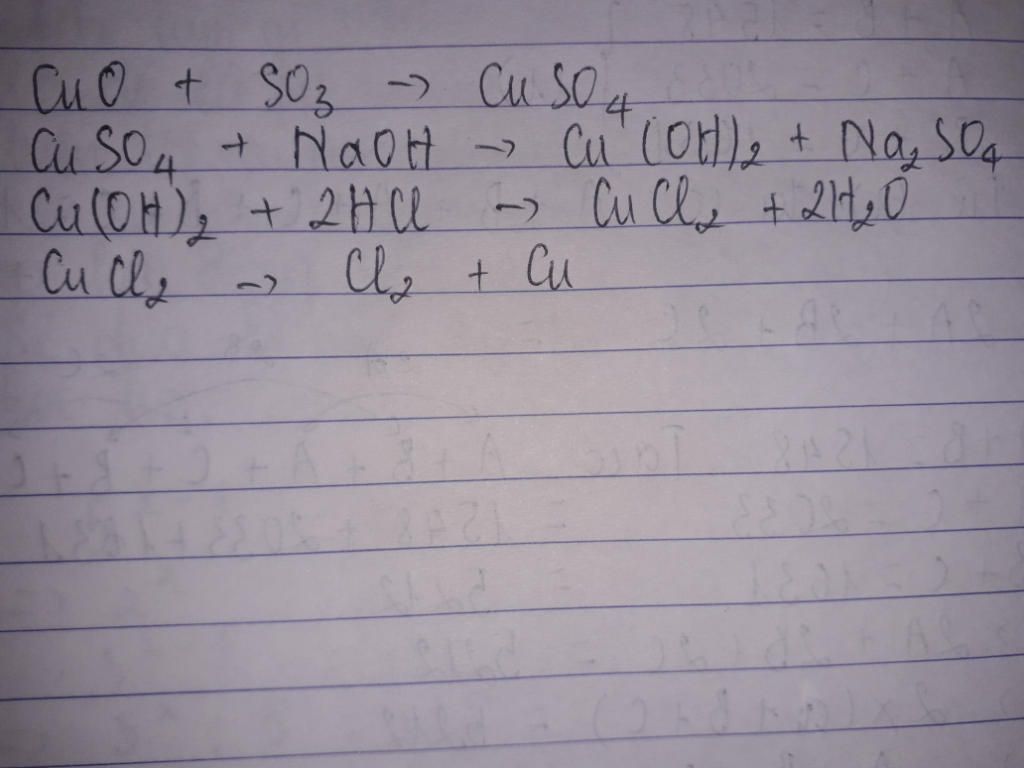 CuO + SO₃ → CuSO₄
CuSO₄ + NaOH → Cu(OH)₂ + Na₂SO₄
Cu(OH)₂ + 2HCl → CuCl₂ + 2H₂O
CuCl₂ → Cl₂ + Cu